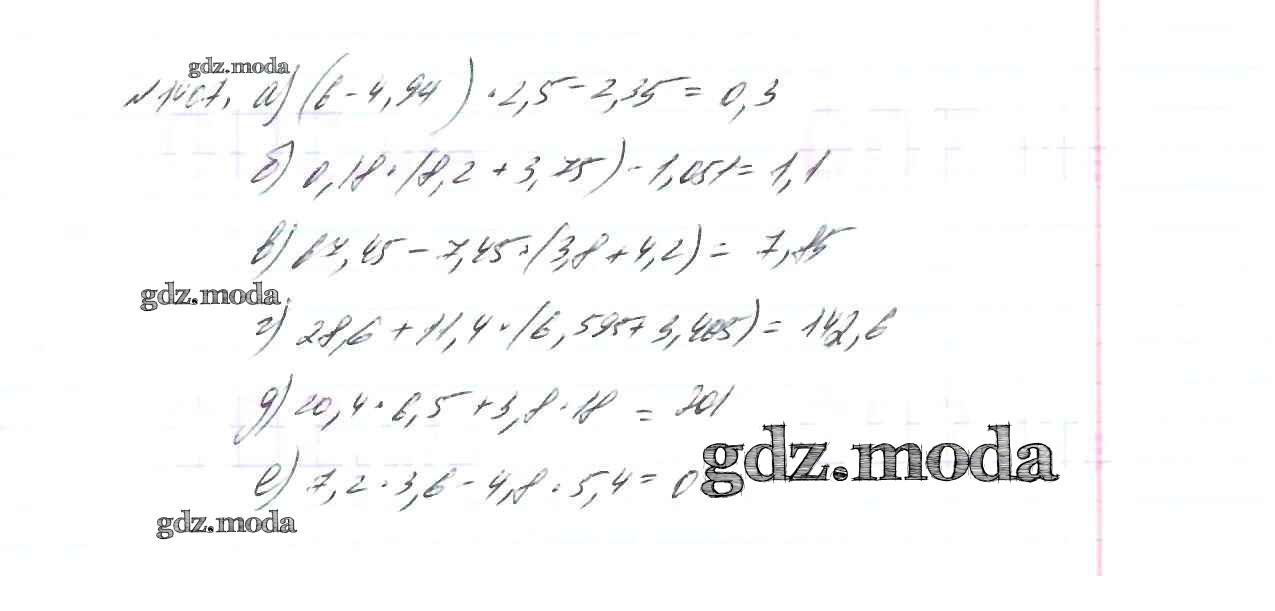 gdz.moda
№1407. а) (6-4,94)·2,5-2,35=0,3
б) 0,18·(8,2+3,75)-1,051=1,1
в) 67,45-7,45·(3,8+4,2)=7,85
gdz.moda
г) 28,6+11,4·(6,595+3,405)=142,6
д) 20,4·6,5+3,8·18=201
gdz.moda
е) 7,2·3,6-4,8·5,4=0
gdz.moda